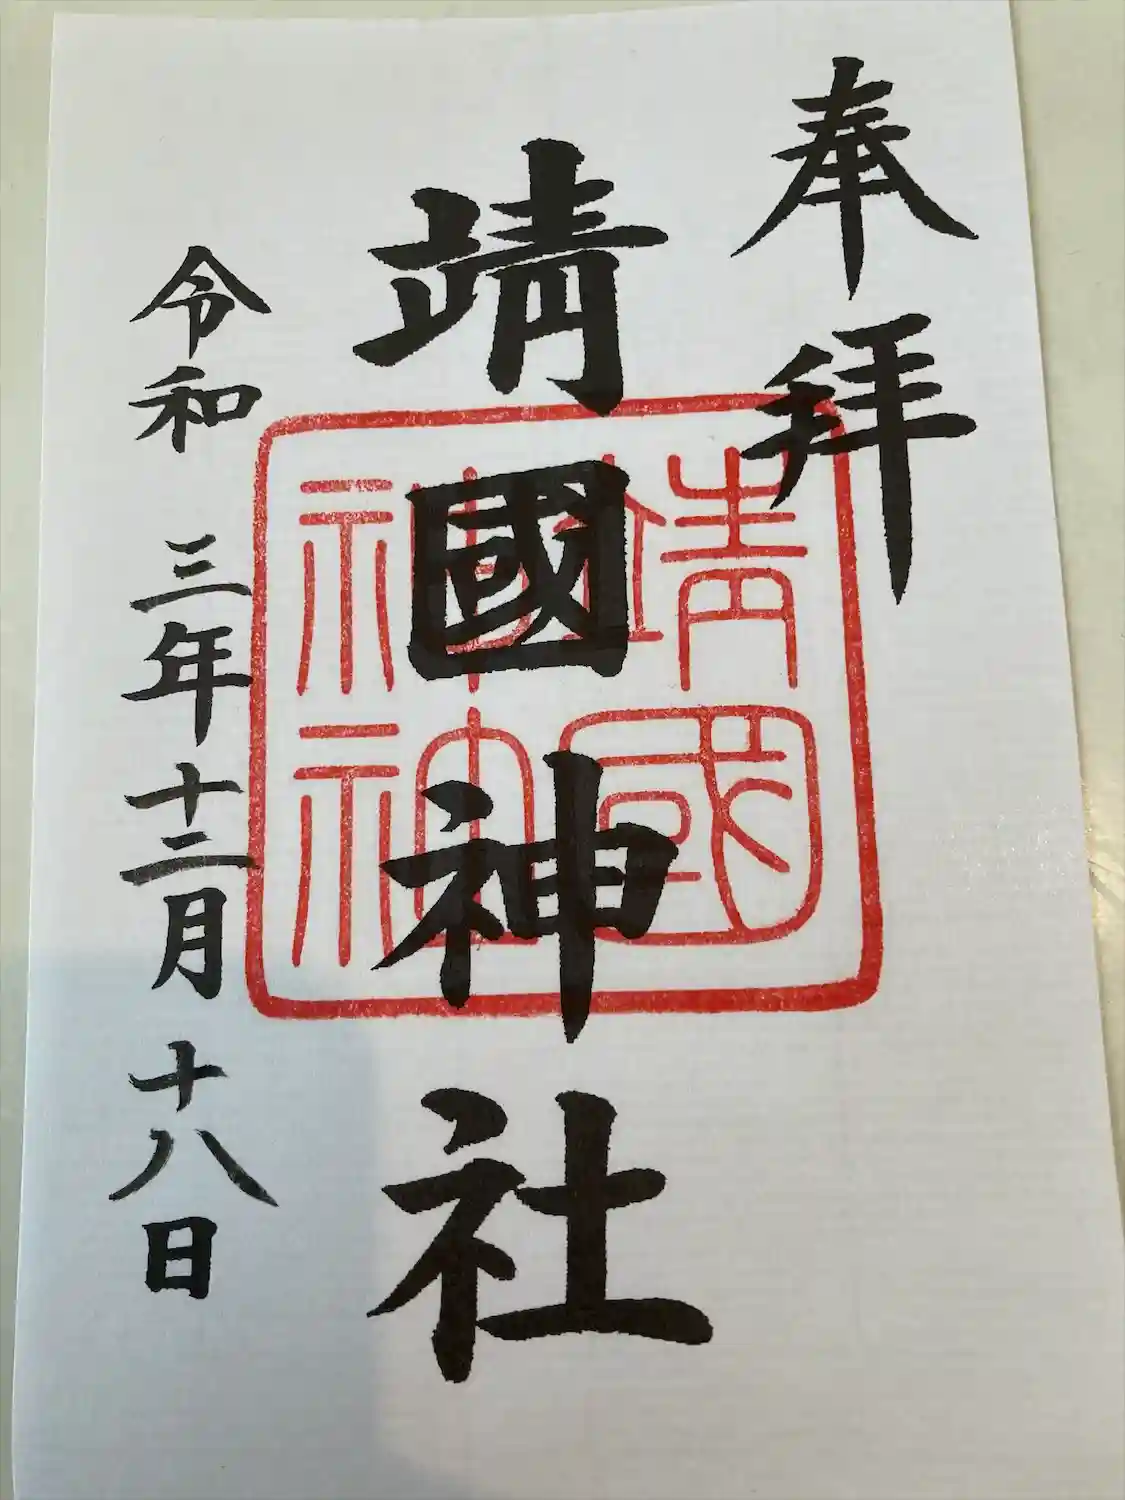 奉拜
靖國神社
靖國神社
令和三年十二月十八日